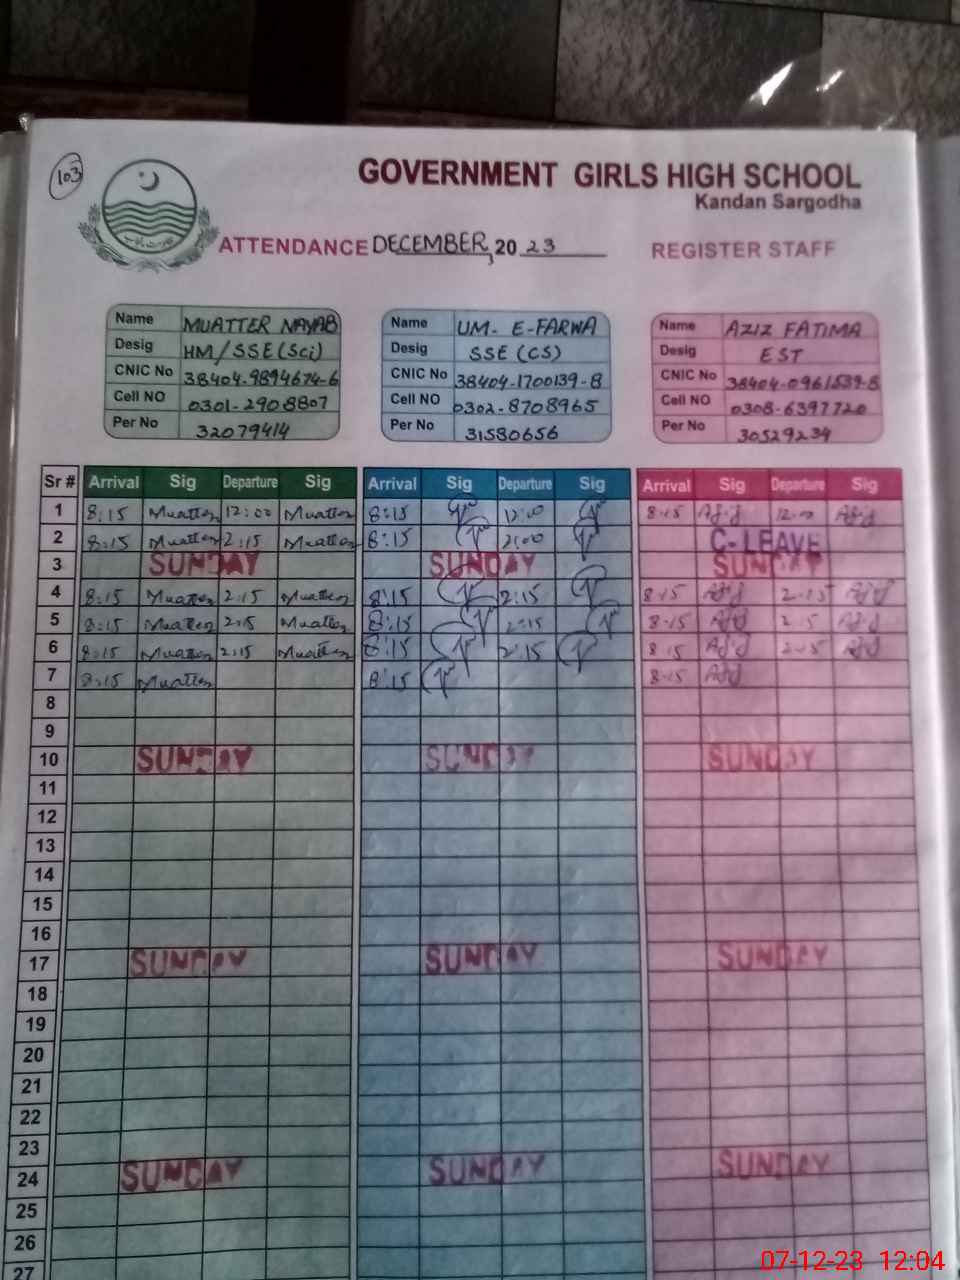 103
GOVERNMENT GIRLS HIGH SCHOOL
Kandan Sargodha
ATTENDANCE DECEMBER, 20 23 REGISTER STAFF
Name MUATTER NAYAB Name UM- E-FARWA Name AZIZ FATIMA
Desig HM/SSE(Sci) Desig SSE (CS) Desig EST
CNIC No 38404-9894674-6 CNIC No 38404-1700139-8 CNIC No 38404-0961539-8
Cell NO 0301-2908807 Cell NO 0302-8708965 Cell NO 0308-6397720
Per No 32079414 Per No 31580656 Per No 30529234
Sr # Arrival Sig Departure Sig Arrival Sig Departure Sig Arrival Sig Departure Sig
1 8:15 Muatter 12:00 Muatter 8:15 12:00 8:15 12:00
2 8:15 Muatter 2:15 Muatter 8:15 2:00 C-LEAVE
3 SUNDAY SUNDAY SUNDAY
4 8:15 Muatter 2:15 Muatter 8:15 2:15 8:15 2:15
5 8:15 Muatter 2:15 Muatter 8:15 2:15 8:15 2:15
6 8:15 Muatter 2:15 Muatter 8:15 2:15 8:15 2:15
7 8:15 Muatter 8:15 8:15
8
9
10 SUNDAY SUNDAY SUNDAY
11
12
13
14
15
16
17 SUNDAY SUNDAY SUNDAY
18
19
20
21
22
23
24 SUNDAY SUNDAY SUNDAY
25
26
27
07-12-23 12:04